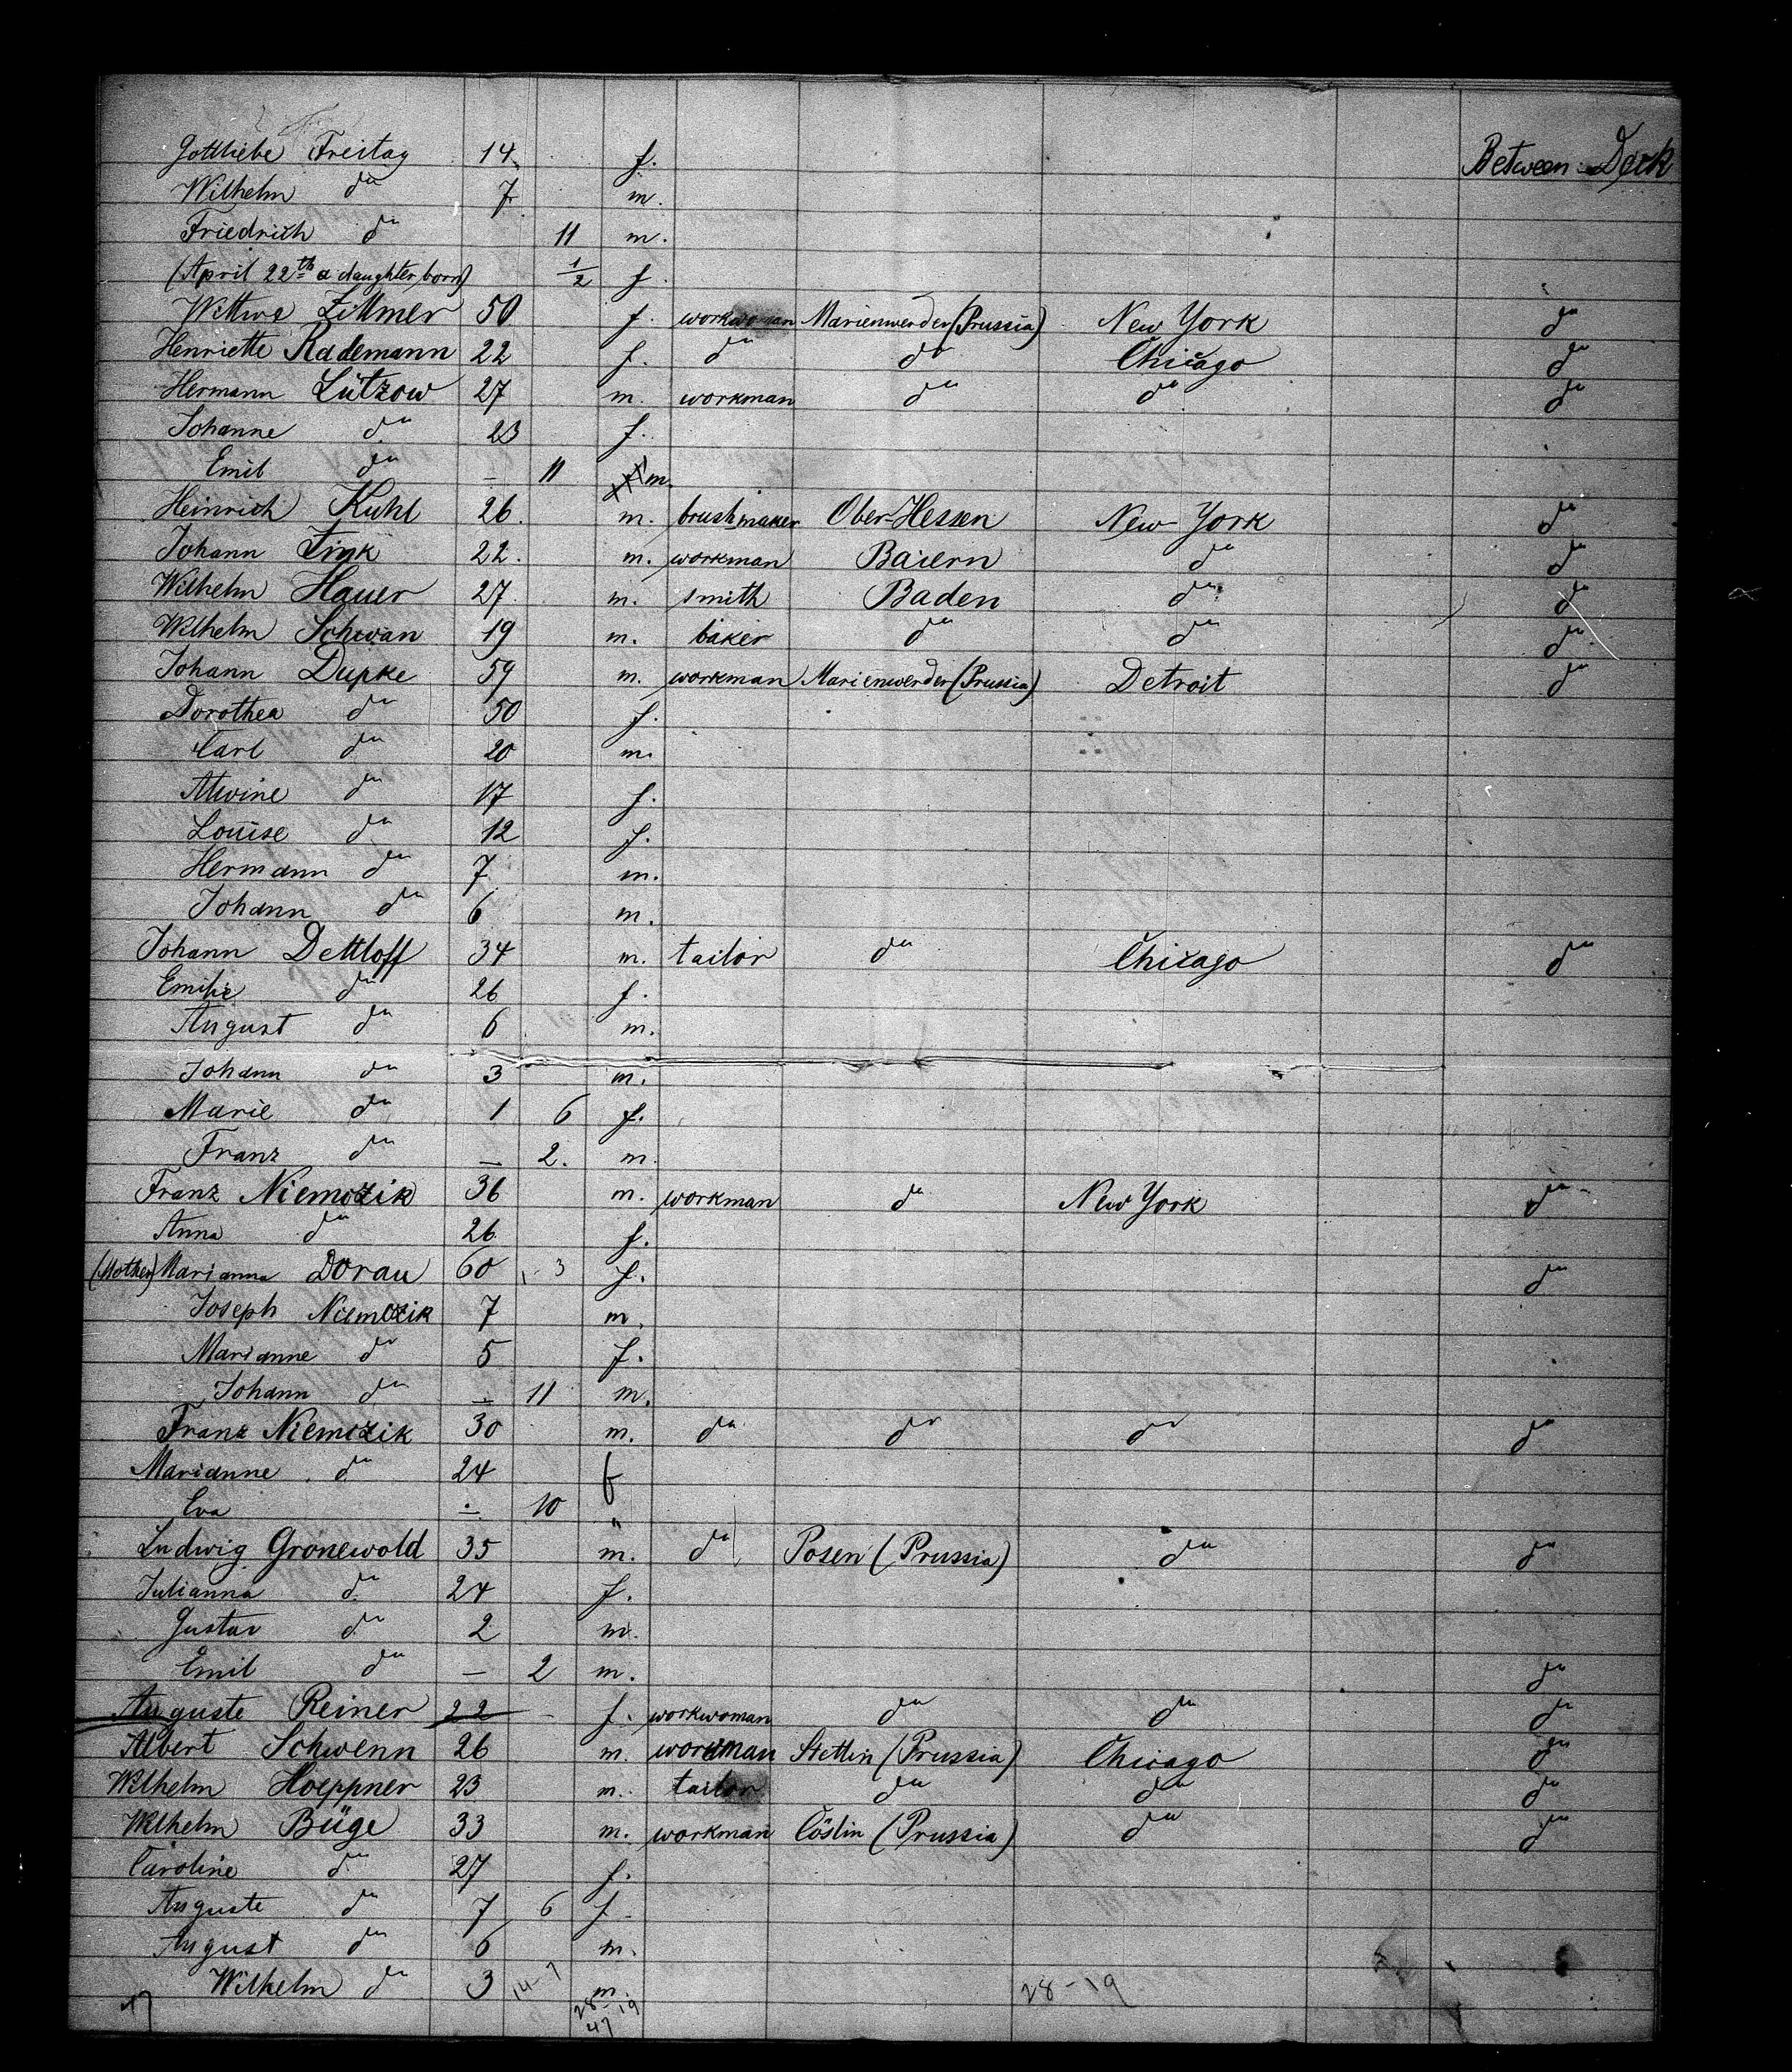 Gottliebe Freitag 14 f. Between Deck
Wilhelm do 7 m.
Friedrich do 11 m.
(April 22th a daughter born) 1/2 f.
Wittwe Zittmer 50 f. workwoman Marienwerder (Prussia) New York do
Henriette Rademann 22 f. do do Chicago do
Hermann Lützow 27 m. workman do do do
Johanne do 23 f.
Emil do — 11 m.
Heinrich Kuhl 26. m. brushmaker Ober-Hessen New-York do
Johann Fink 22. m. workman Baiern do do
Wilhelm Hauer 27. m. smith Baden do do
Wilhelm Schwan 19 m. baker do do do
Johann Dupke 59 m. workman Marienwerder (Prussia) Detroit do
Dorothea do 50 f.
Carl do 20 m.
Alwine do 17 f.
Louise do 12 f.
Hermann do 7 m.
Johann do 6 m.
Johann Dettloff 34 m. tailor do Chicago do
Emilie do 26 f.
August do 6 m.
Johann do 3 m.
Marie do 1 6 f.
Franz do — 2. m.
Franz Niemozik 36 m. workman do New York do
Anna do 26 f.
(Mother) Marianna Dorau 60 1-3 f. do
Joseph Niemozik 7 m.
Marianne do 5 f.
Johann do — 11 m.
Franz Niemozik 30 m. do do do do
Marianne do 24 f
Eva — 10 "
Ludwig Gronewold 35 m. do Posen (Prussia) do do
Julianna do 24 f.
Gustav do 2 m.
Emil do — 2 m. do
Auguste Reiner 22 - f. workwoman do do do
Albert Schwenn 26 m. workman Stettin (Prussia) Chicago do
Wilhelm Hoeppner 23 m. tailor do do do
Wilhelm Büge 33 m. workman Cöslin (Prussia) do do
Caroline do 27 f.
Auguste do 7 6 f
August do 6 m.
Wilhelm do 3 14-7 m. 28-19
28-19
47